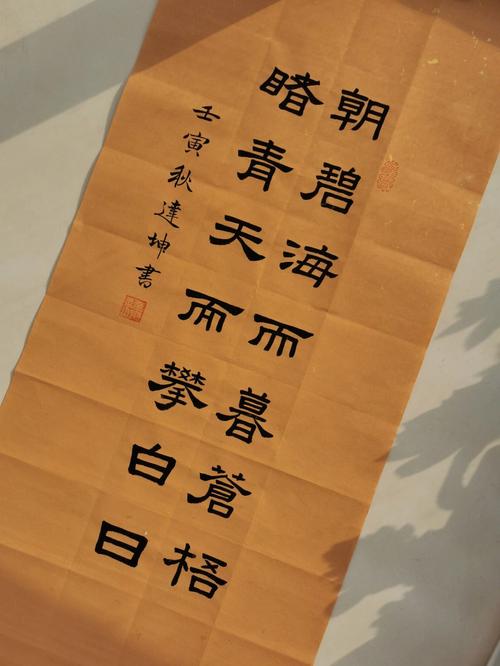 朝碧海而暮蒼梧
睹青天而攀白日
壬寅秋達坤書